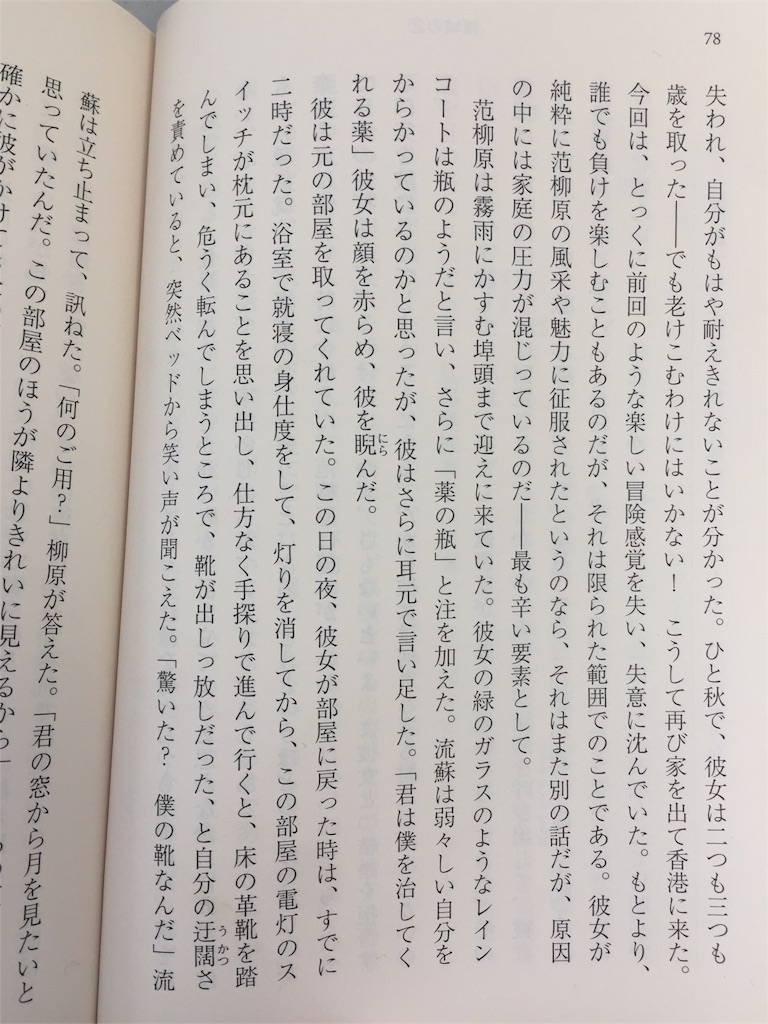 78
失われ、自分がもはや耐えきれないことが分かった。ひと秋で、彼女は二つも三つも
歳を取った――でも老けこむわけにはいかない！　こうして再び家を出て香港に来た。
今回は、とっくに前回のような楽しい冒険感覚を失い、失意に沈んでいた。もとより、
誰でも負けを楽しむこともあるのだが、それは限られた範囲でのことである。彼女が
純粋に范柳原の風采や魅力に征服されたというのなら、それはまた別の話だが、原因
の中には家庭の圧力が混じっているのだ――最も辛い要素として。
范柳原は霧雨にかすむ埠頭まで迎えに来ていた。彼女の緑のガラスのようなレイン
コートは瓶のようだと言い、さらに「薬の瓶」と注を加えた。流蘇は弱々しい自分を
からかっているのかと思ったが、彼はさらに耳元で言い足した。「君は僕を治してく
れる薬」彼女は顔を赤らめ、彼を睨んだ。
にら
彼は元の部屋を取ってくれていた。この日の夜、彼女が部屋に戻った時は、すでに
二時だった。浴室で就寝の身仕度をして、灯りを消してから、この部屋の電灯のス
イッチが枕元にあることを思い出し、仕方なく手探りで進んで行くと、床の革靴を踏
んでしまい、危うく転んでしまうところで、靴が出しっ放しだった、と自分の迂闊さ
うかつ
を責めていると、突然ベッドから笑い声が聞こえた。「驚いた？　僕の靴なんだ」流
蘇は立ち止まって、訊ねた。「何のご用？」柳原が答えた。「君の窓から月を見たいと
思っていたんだ。この部屋のほうが隣よりきれいに見えるから」
確かに彼がかけて